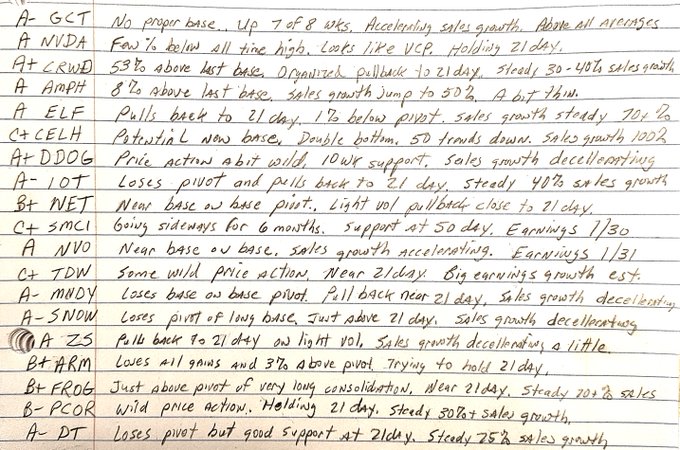 A- GCT No proper base. Up 7 of 8 wks. Accelerating sales growth. Above all averages
A NVDA Few % below all time high. Looks like VCP. Holding 21 day.
A+ CRWD 53% above last base. Organized pullback to 21 day. Steady 30-40% sales growth
A AMPH 8% above last base. Sales growth jump to 50%. A bit thin.
A ELF Pulls back to 21 day. 1% below pivot. Sales growth steady 70+%
C+ CELH Potential new base. Double bottom. 50 trends down. Sales growth 100%
A+ DDOG Price action a bit wild. 10wk support. Sales growth decellerating
A- IOT Loses pivot and pulls back to 21 day. Steady 40% sales growth
B+ NET Near base on base pivot. Light vol pullback close to 21 day.
C+ SMCI Going sideways for 6 months. Support at 50 day. Earnings 1/30
A NVO Near base on base. Sales growth accelerating. Earnings 1/31
C+ TDW Some wild price action. Near 21day. Big earnings growth est.
A- MNDY Loses base on base pivot. Pull back near 21 day, Sales growth decellerating
A- SNOW Loses pivot of long base. Just above 21 day. Sales growth decellerating
A ZS Pulls back to 21 day on light vol, Sales growth decellerating a little.
B+ ARM Loses all gains and 3% above pivot. Trying to hold 21 day.
B+ FROG Just above pivot of very long consolidation. Near 21day. Steady 20+% sales
B- PCOR Wild price action. Holding 21 day. Steady 30%+ sales growth.
A- DT Loses pivot but good support at 21day. Steady 25% sales growth